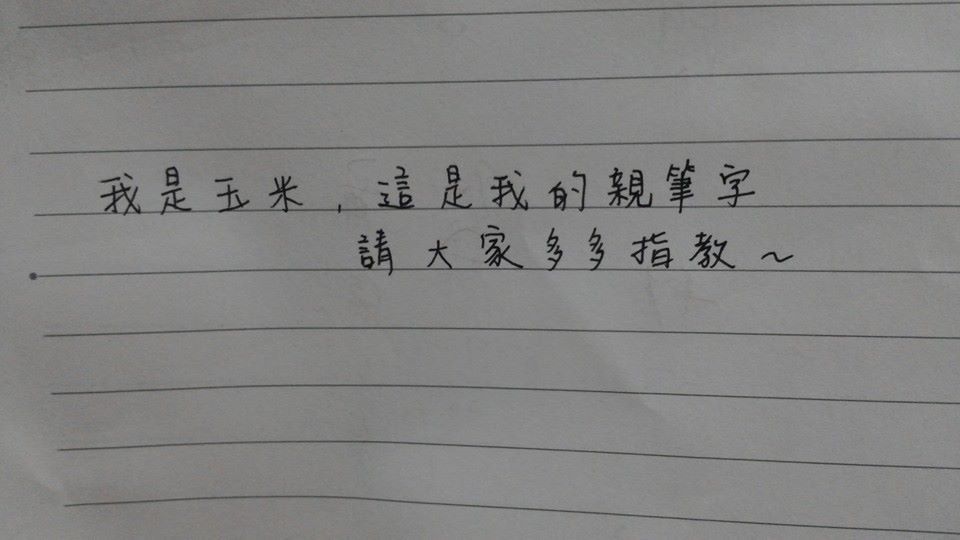 我是玉米，這是我的親筆字
請大家多多指教～